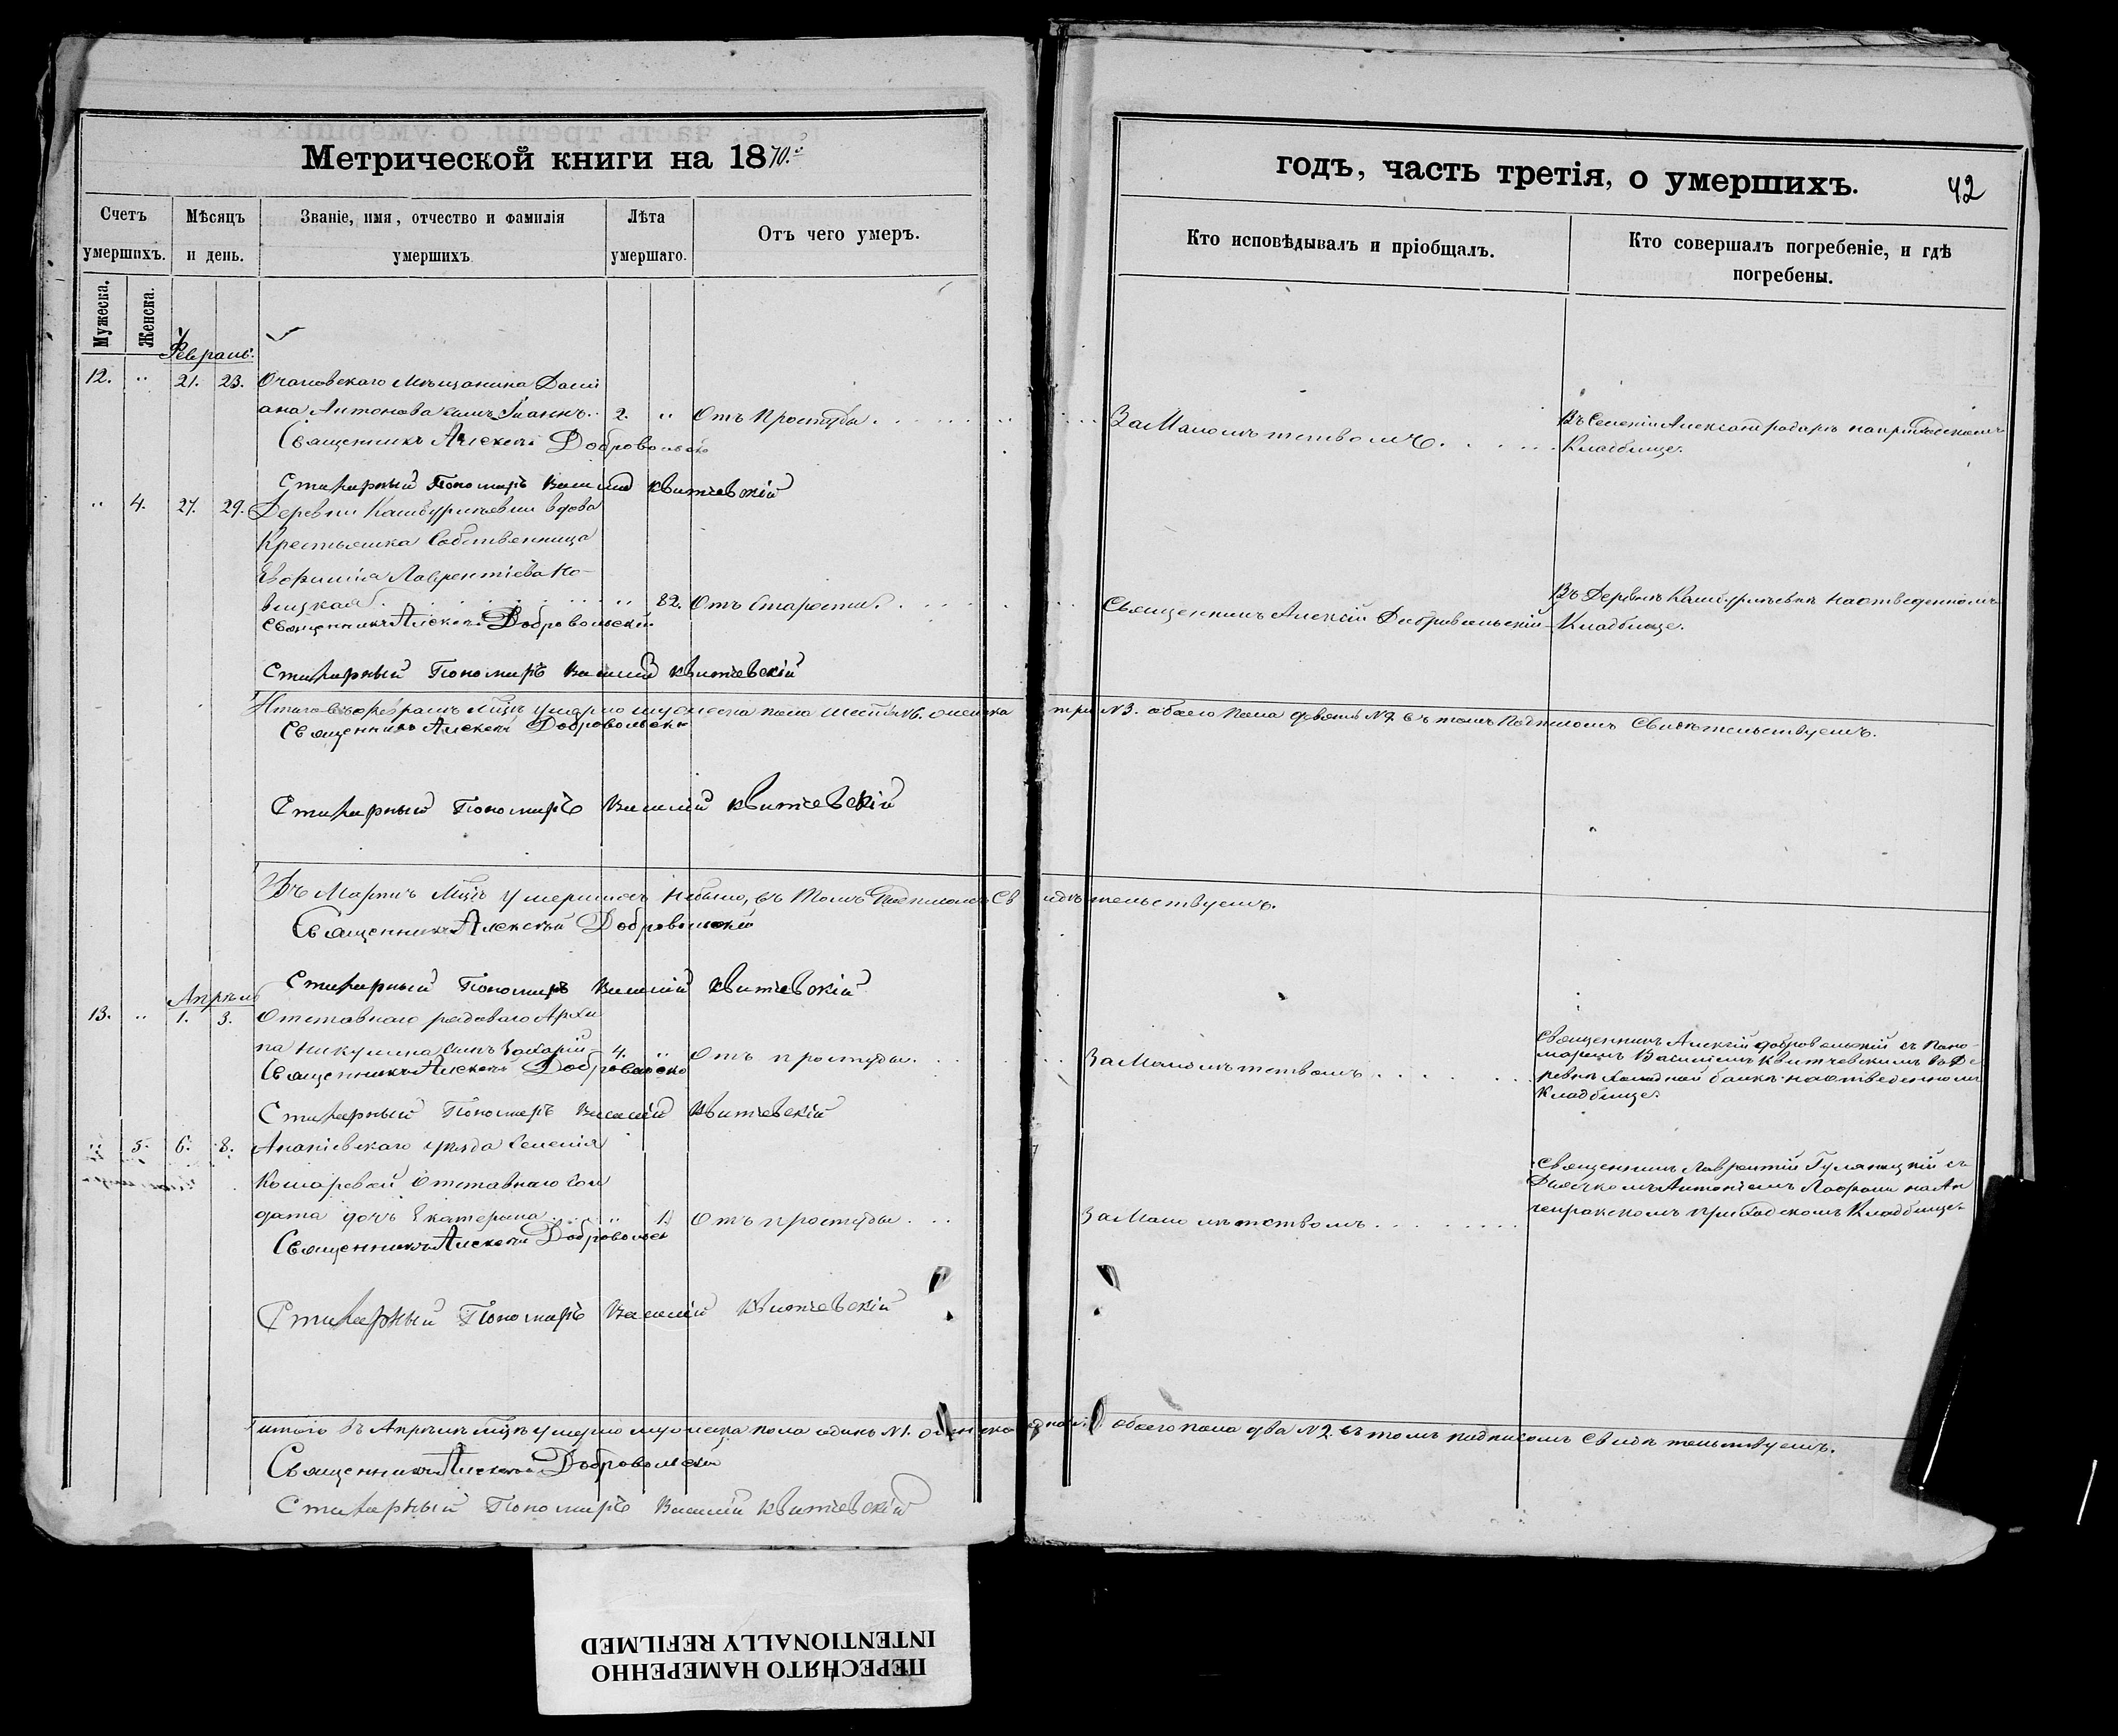 Метрической книги на 1870.й
годъ, часть третія, о умершихъ.
42
Счетъ умершихъ.
Мѣсяцъ и день.
Званіе, имя, отчество и фамилія умершихъ
Лѣта умершаго.
Отъ чего умеръ.
Кто исповѣдывалъ и пріобщалъ.
Кто совершалъ погребеніе, и гдѣ погребены.
Мужеска.
Женска.
Февраль.
12. " 21. 23. Очаковскаго Мѣщанина Дамі
ана Антонова сынъ Іоаннъ. 2. " Отъ Простуды.
За Малолѣтствомъ.
Въ Селеніи Александродаръ на приходскомъ
Кладбище.
Священникъ Алексѣй Добровольскій
Стихарный Пономарь Василій Квитчевскій
" 4. 27. 29. Деревни вдова
Крестьянка Собственница
Евфимія Лаврентіева Но-
вицкая " 82. Отъ Старости.
Священникъ Алексій Добровольскій
Въ Деревнѣ на отведенномъ
Кладбище.
Священникъ Алексѣй Добровольскій
Стихарный Пономарь Василій Квитчевскій
Итого въ февралѣ мцѣ умерло мужеска пола шесть №6. женска три №3. обоего пола девять №9 въ томъ Подписомъ Свидѣтельствуемъ.
Священникъ Алексѣй Добровольскій
Стихарный Пономарь Василій Квитчевскій
Въ Мартѣ Мцѣ умершихъ небыло, въ томъ Подписомъ Свидѣтельствуемъ.
Священникъ Алексѣй Добровольскій
Стихарный Пономарь Василій Квитчевскій
Апрѣль
13. " 1. 3. Отставнаго рядоваго Архи
па Никулина сынъ Захарій 4. " Отъ простуды.
За Малолѣтствомъ
Священникъ Алексій Добровольскій съ Поно-
маремъ Василіемъ Квитчевскимъ въ Де
ревнѣ балкѣ на отведенномъ
Кладбище.
Священникъ Алексѣй Добровольскій
Стихарный Пономарь Василій Квитчевскій
" 5. 6. 8. Ананіевскаго уѣзда Селенія
Комаревой Отставнаго Сол
дата дочь Екатерина " 1. Отъ простуды
За Мало лѣтствомъ
Священникъ Лаврентій съ
Дьячкомъ Антоніемъ на
приходскомъ Кладбище.
Священникъ Алексѣй Добровольскій
Стихарный Пономарь Василій Квитчевскій
Итого въ Апрѣлѣ мцѣ умерло мужеска пола одинъ №1. женска одна обоего пола два №2. въ томъ подписомъ Свидѣтельствуемъ.
Священникъ Алексѣй Добровольскій
Стихарный Пономарь Василій Квитчевскій
ПЕРЕСНЯТО НАМЕРЕННО
INTENTIONALLY REFILMED